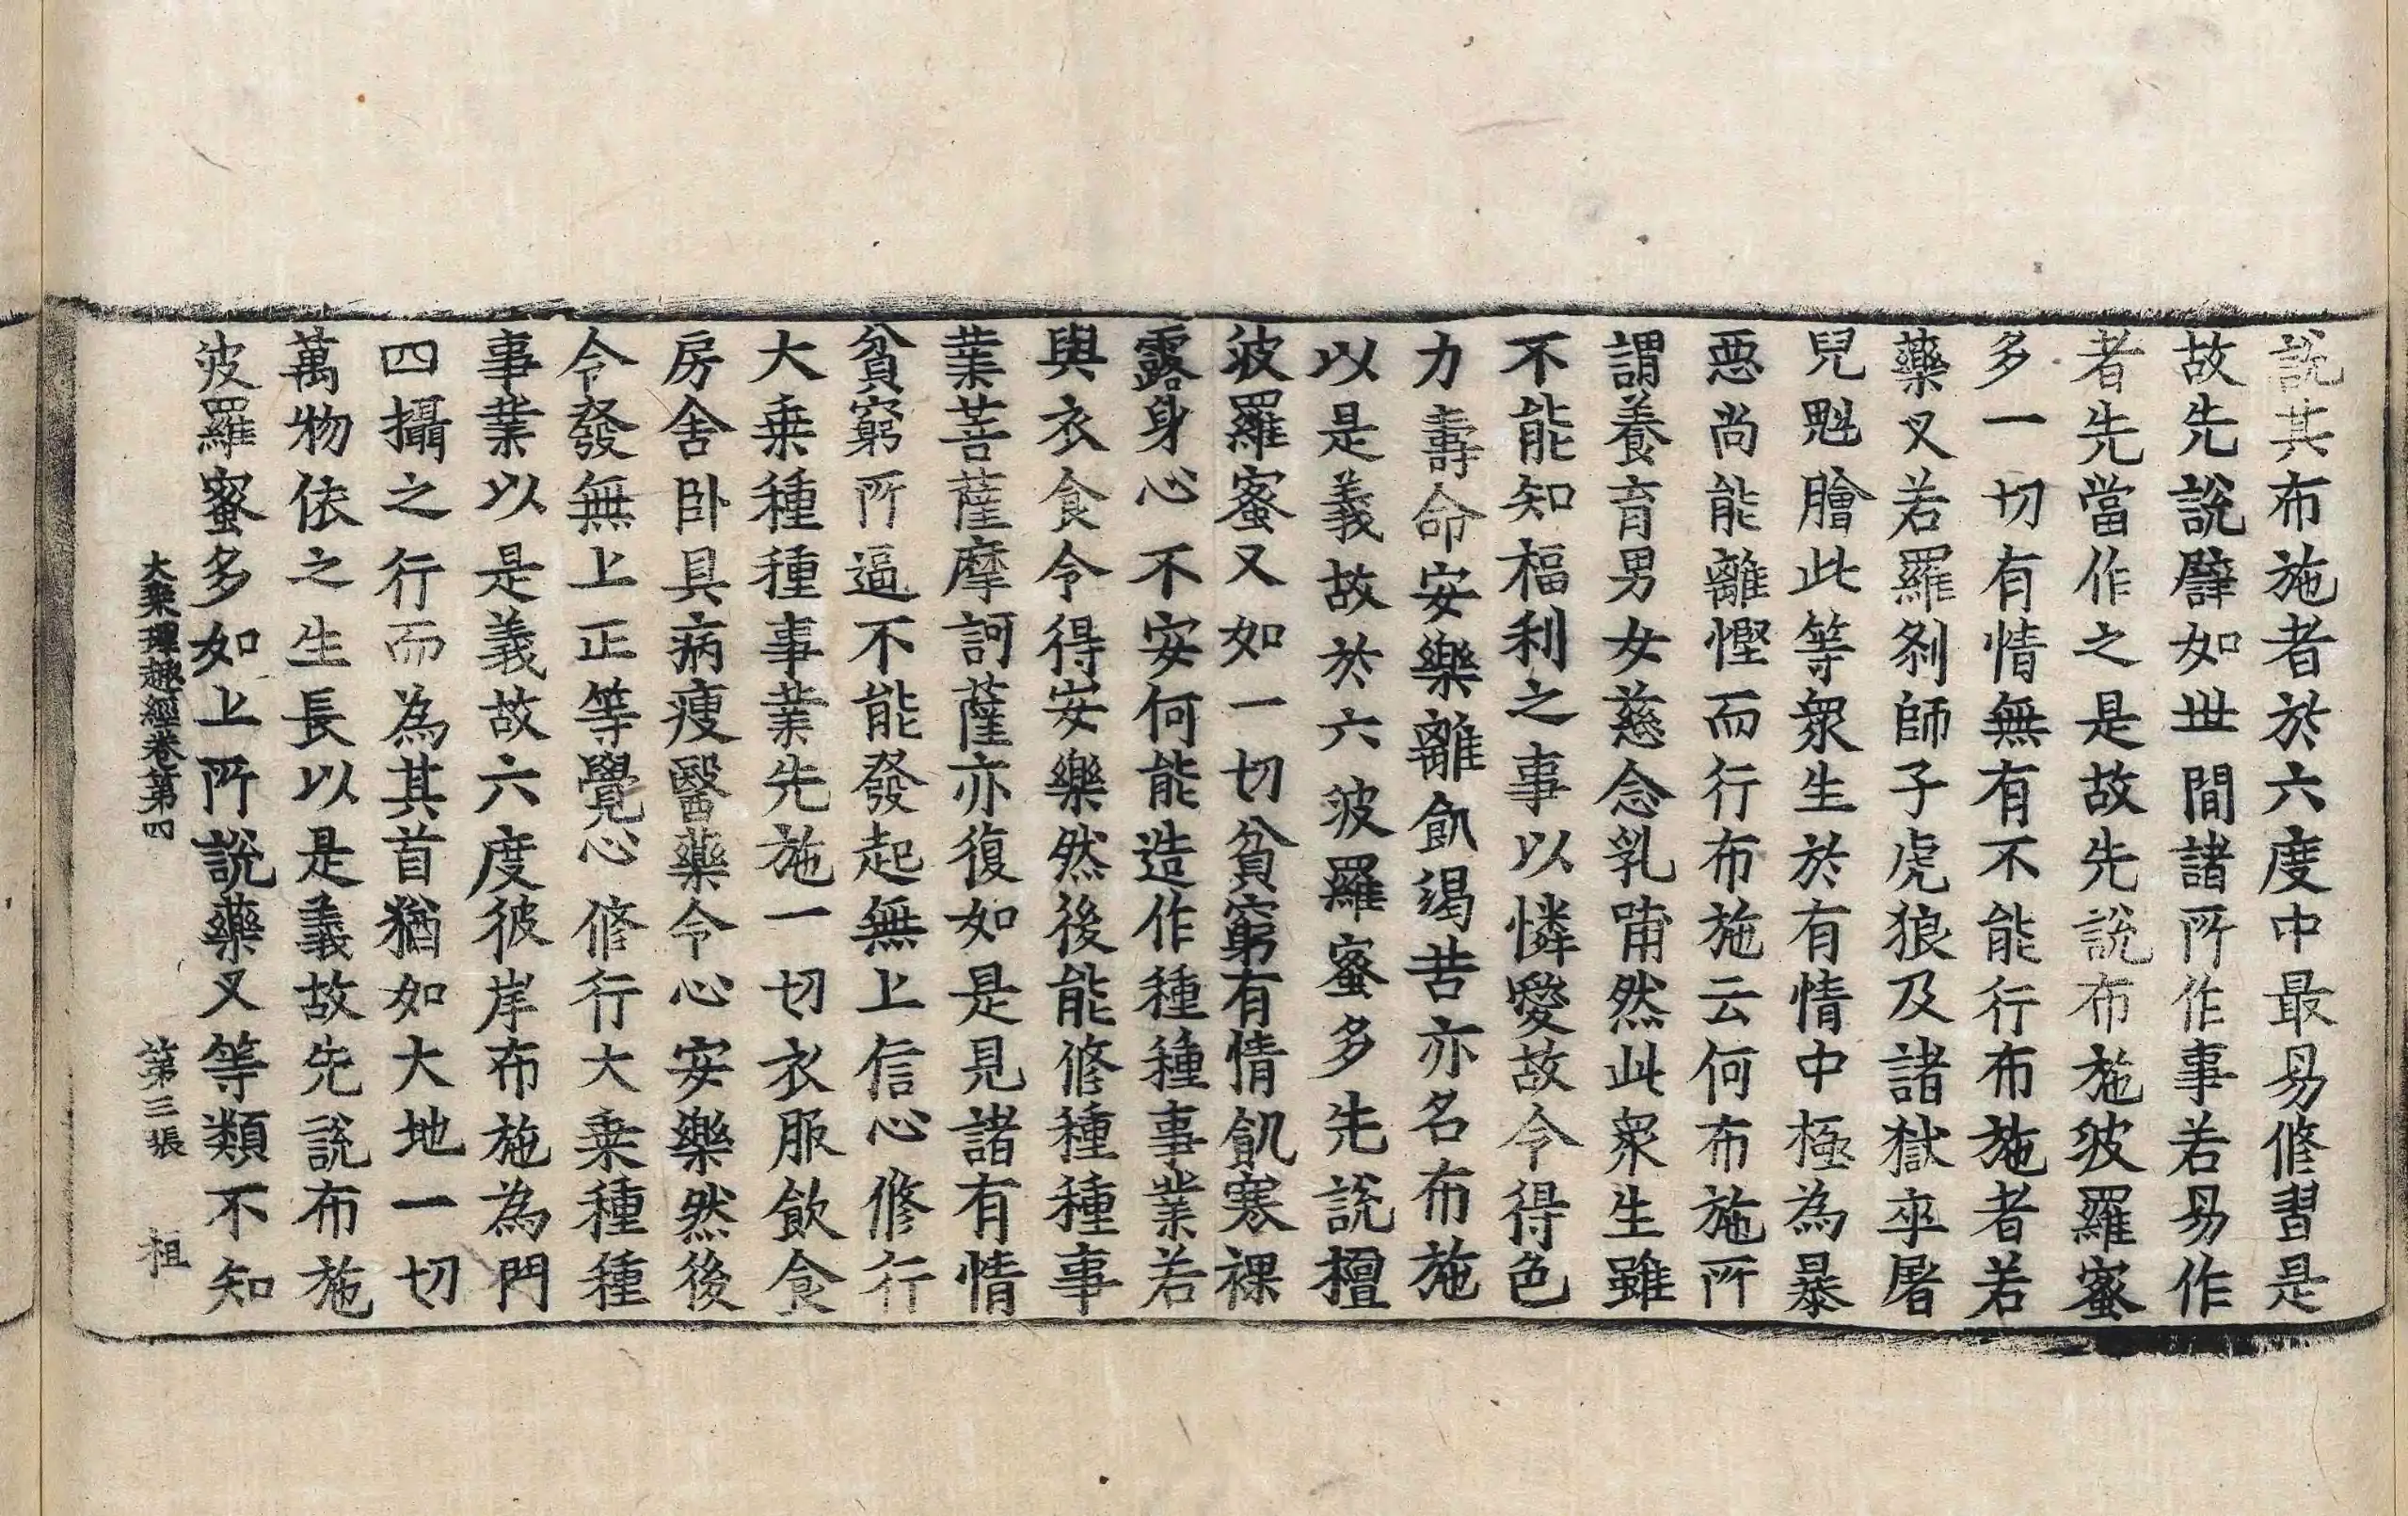 說其布施者於六度中最易修習是
故先說譬如世間諸所作事若易作
者先當作之是故先說布施波羅蜜
多一切有情無有不能行布施者若
藥叉若羅剎師子虎狼及諸獄卒屠
兒魁膾此等衆生於有情中極為暴
惡尚能離慳而行布施云何布施所
謂養育男女慈念乳哺然此衆生雖
不能知福利之事以憐愛故令得色
力壽命安樂離飢渴苦亦名布施
以是義故於六波羅蜜多先說檀
波羅蜜又如一切貧窮有情飢寒裸
露身心不安何能造作種種事業若
與衣食令得安樂然後能修種種事
業菩薩摩訶薩亦復如是見諸有情
貧窮所逼不能發起無上信心修行
大乗種種事業先施一切衣服飲食
房舍卧具病瘦醫藥令心安樂然後
令發無上正等覺心修行大乗種種
事業以是義故六度彼岸布施為門
四攝之行而為其首猶如大地一切
萬物依之生長以是義故先說布施
波羅蜜多如上所說藥叉等類不知
大乗理趣經卷第四 第三張 柤